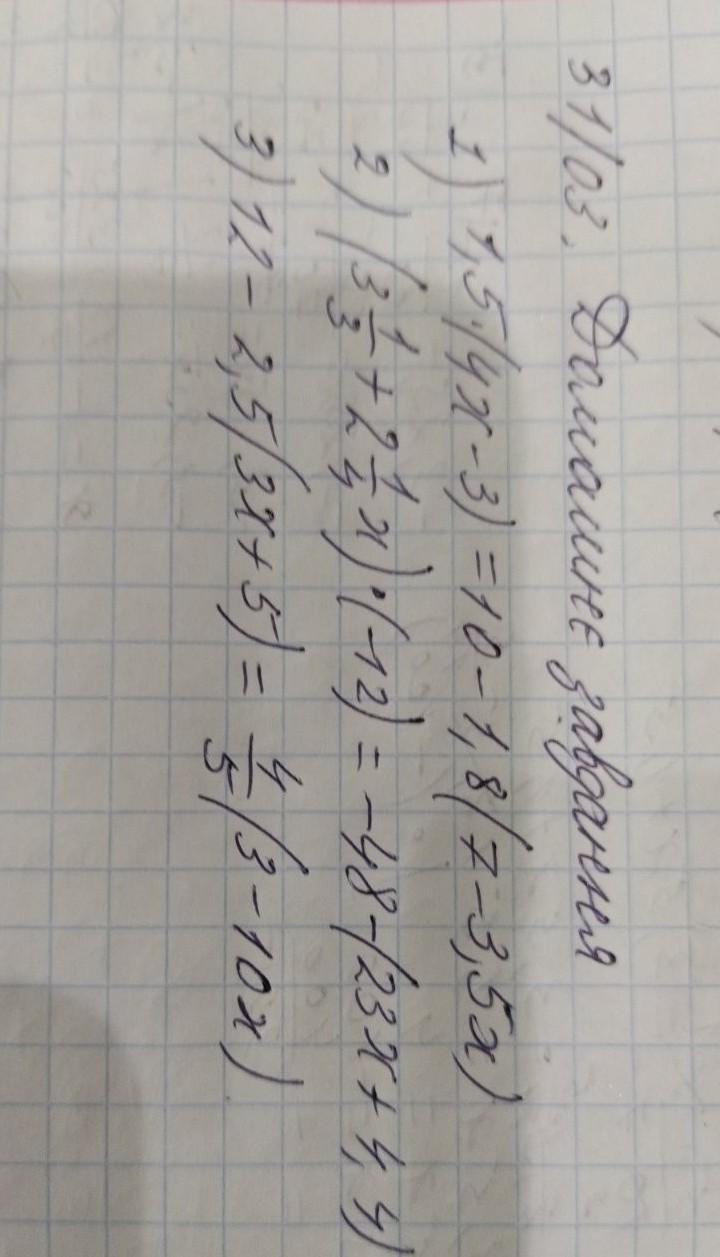 31/03. Домашнє завдання
1) 1,5(4x-3)=10-1,8(7-3,5x)
2) (3 1/3 + 2 1/4 x)·(-12) = -48-(23x+4,4)
3) 12-2,5(3x+5) = 4/5 (3-10x)